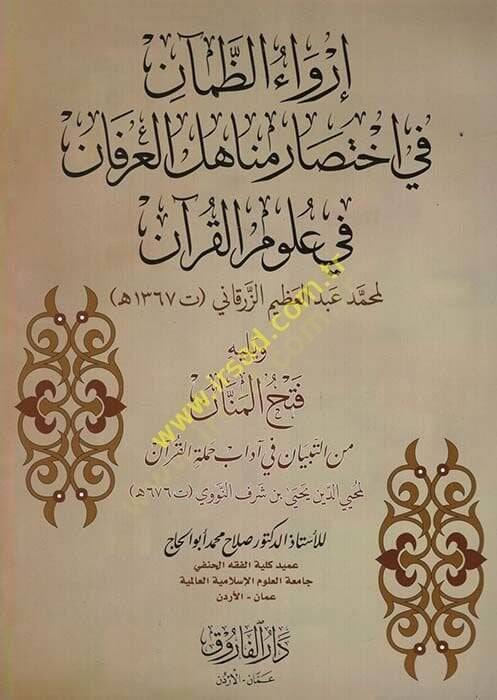 إرواء الظمآن
في اختصار مناهل العرفان
في علوم القرآن
لمحمد عبد العظيم الزرقاني (ت ١٣٦٧هـ)
ويليه
فتح المنان
من التبيان في آداب حملة القرآن
لمحيي الدين يحيى بن شرف النووي (ت ٦٧٦هـ)
للأستاذ الدكتور صلاح محمد أبو الحاج
عميد كلية الفقه الحنفي
جامعة العلوم الإسلامية العالمية
عمان - الأردن
دار الفاروق
عمان - الأردن
www.irsad.com.tr